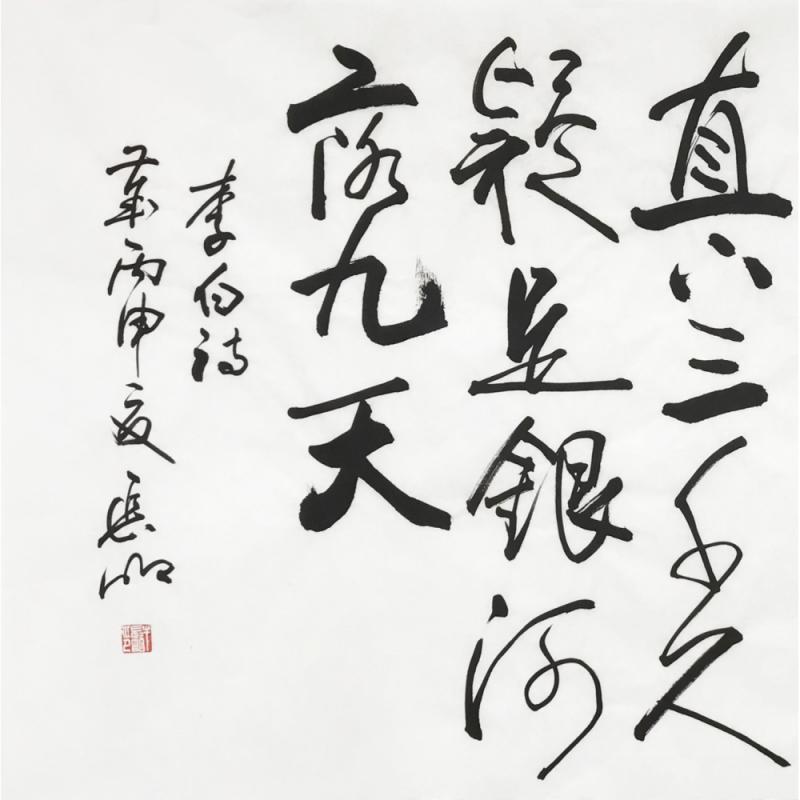 直下三千尺
疑是銀河
落九天
李白詩
歲丙申夏